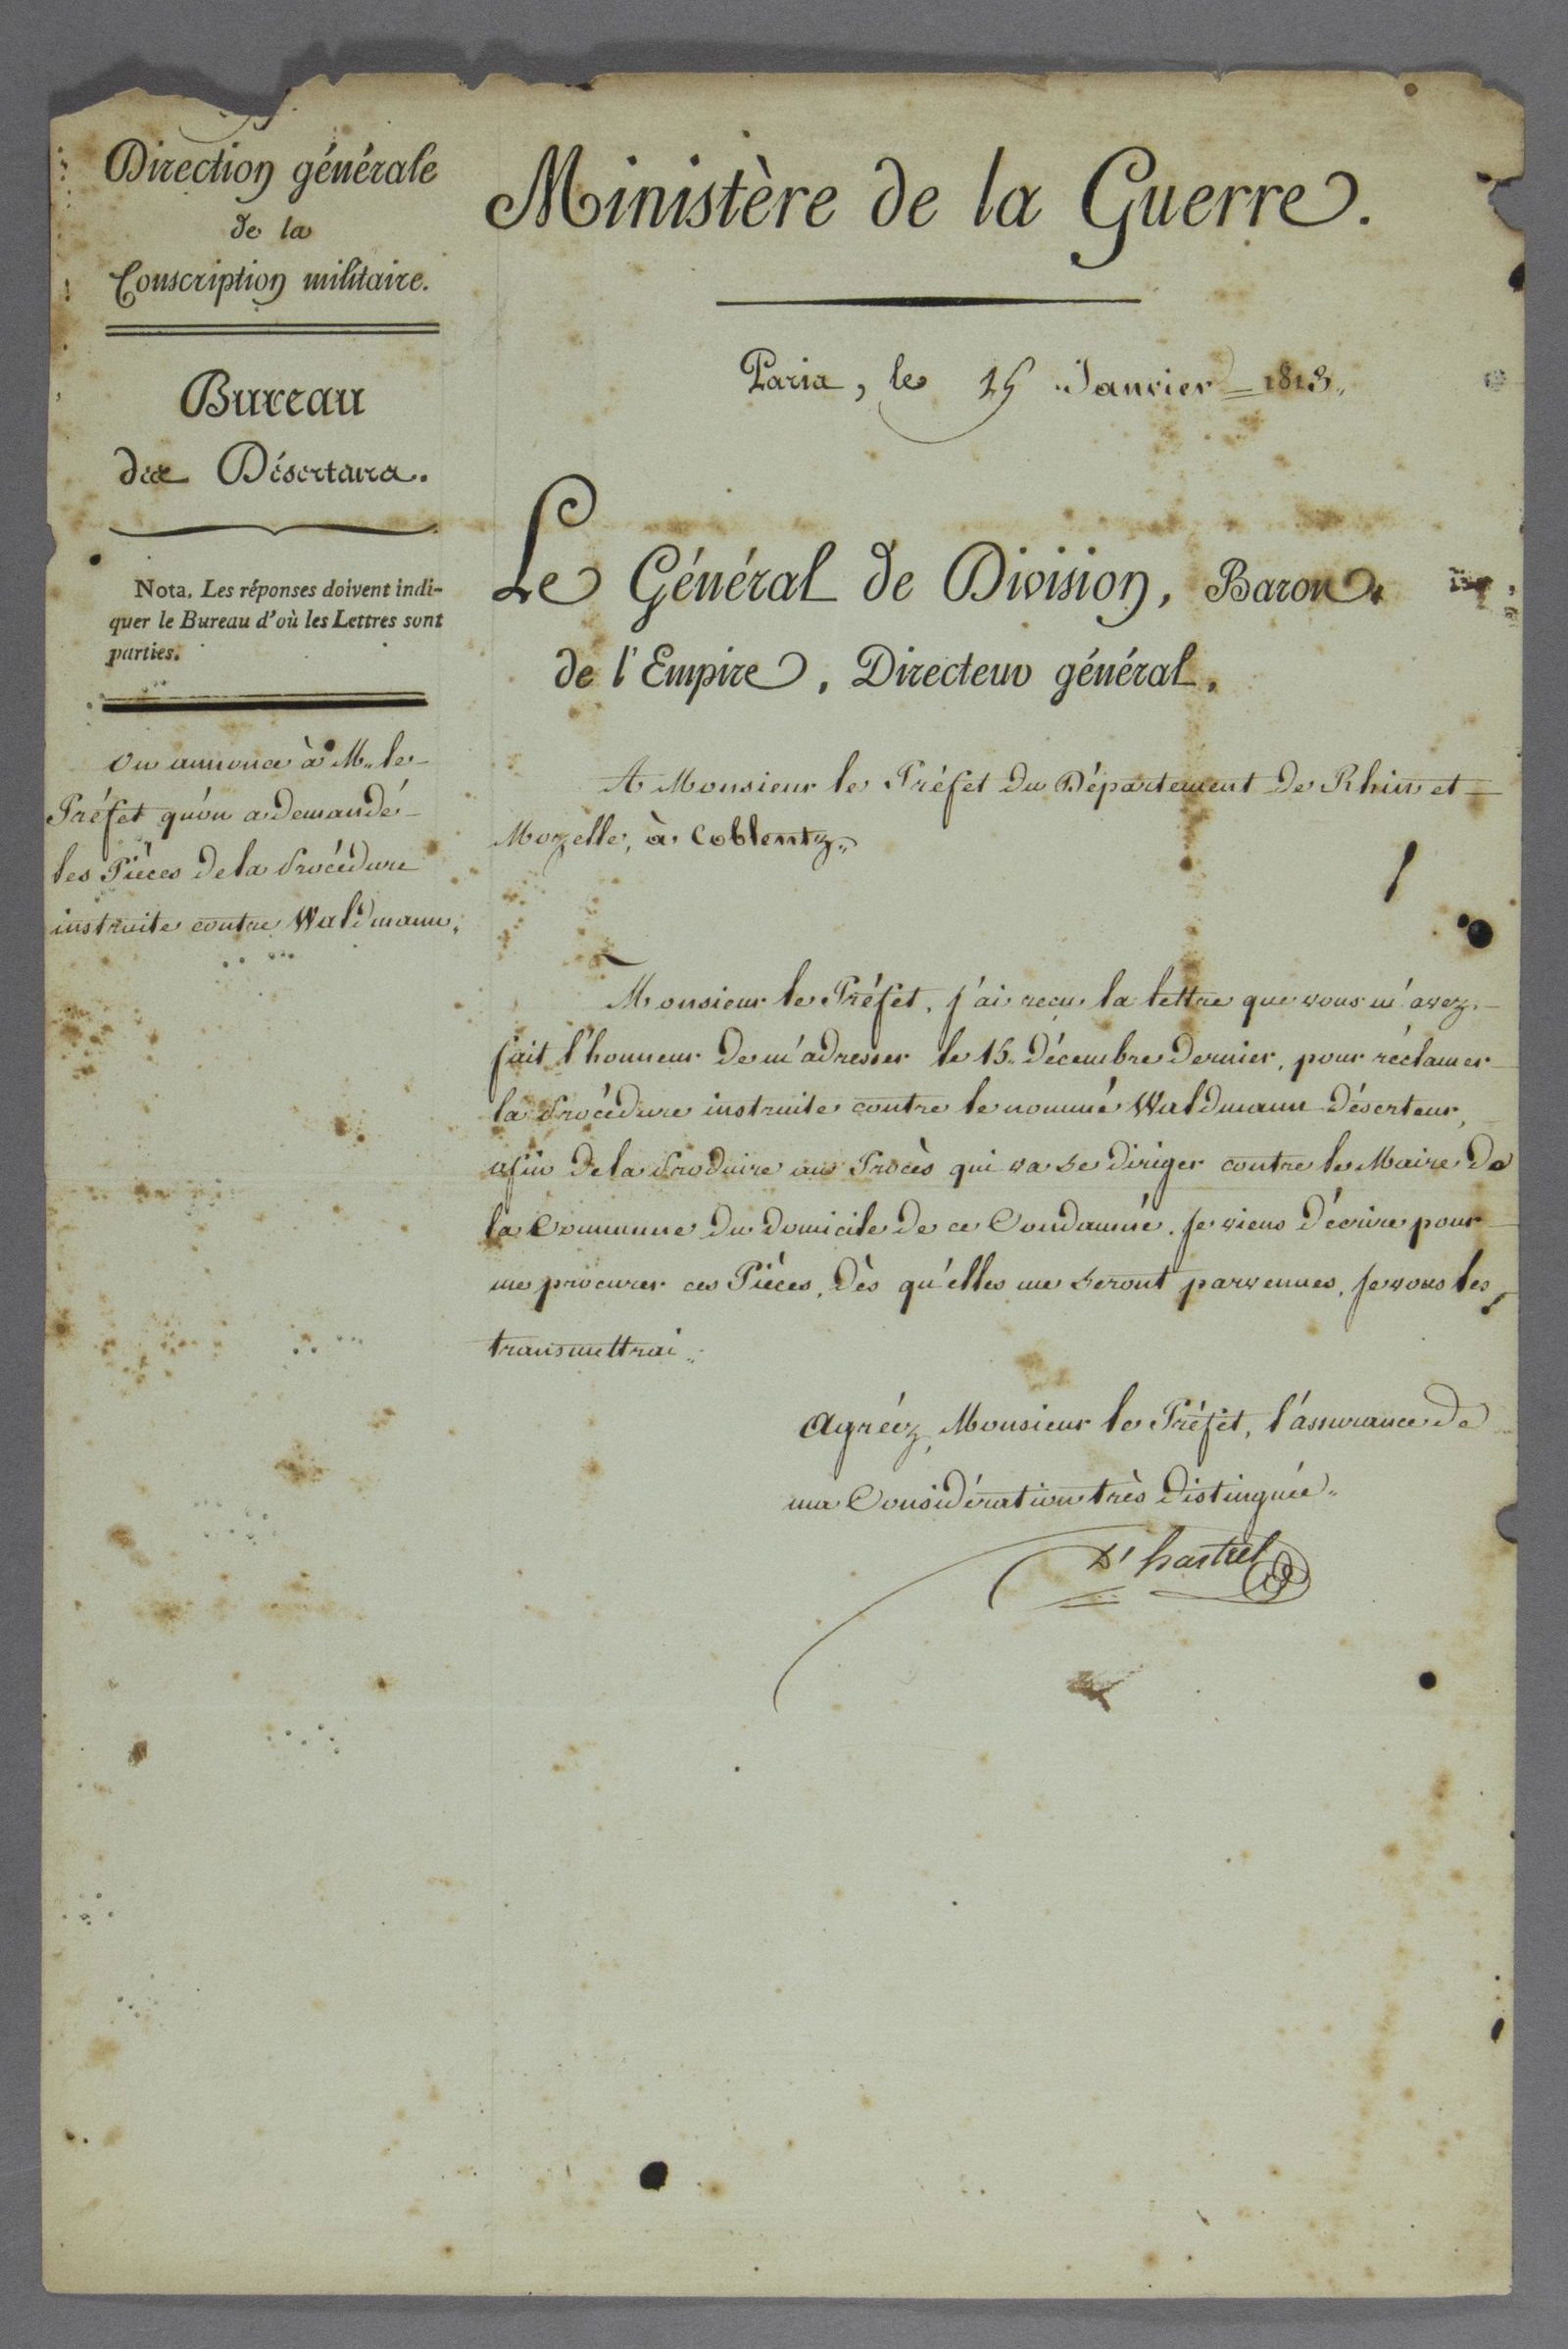 Direction générale
de la
Conscription militaire.
Bureau
des Déserteurs.
Nota. Les réponses doivent indi-
quer le Bureau d'où les Lettres sont
parties.
On annonce à M. le
Préfet qu'on a demandé
les Pièces de la Procédure
instruite contre Waldmann.
Ministère de la Guerre.
Paris, le Janvier 1813.
Le Général de Division, Baron
de l'Empire, Directeur général,
A Monsieur le Préfet du Département de Rhin et
Mozelle, à Coblentz.
Monsieur le Préfet, j'ai reçu la lettre que vous m'avez
fait l'honneur de m'adresser le 15 décembre dernier, pour réclamer
la Procédure instruite contre le nommé Waldmann déserteur,
afin de la Produire au Procès qui va se diriger contre le Maire de
la Commune du domicile de ce Condamné. Je viens d'écrire pour
me procurer ces Pièces, dès qu'elles me seront parvenues, je vous les
transmettrai.
Agréez, Monsieur le Préfet, l'assurance de
ma Considération très distinguée.
D'hastrel